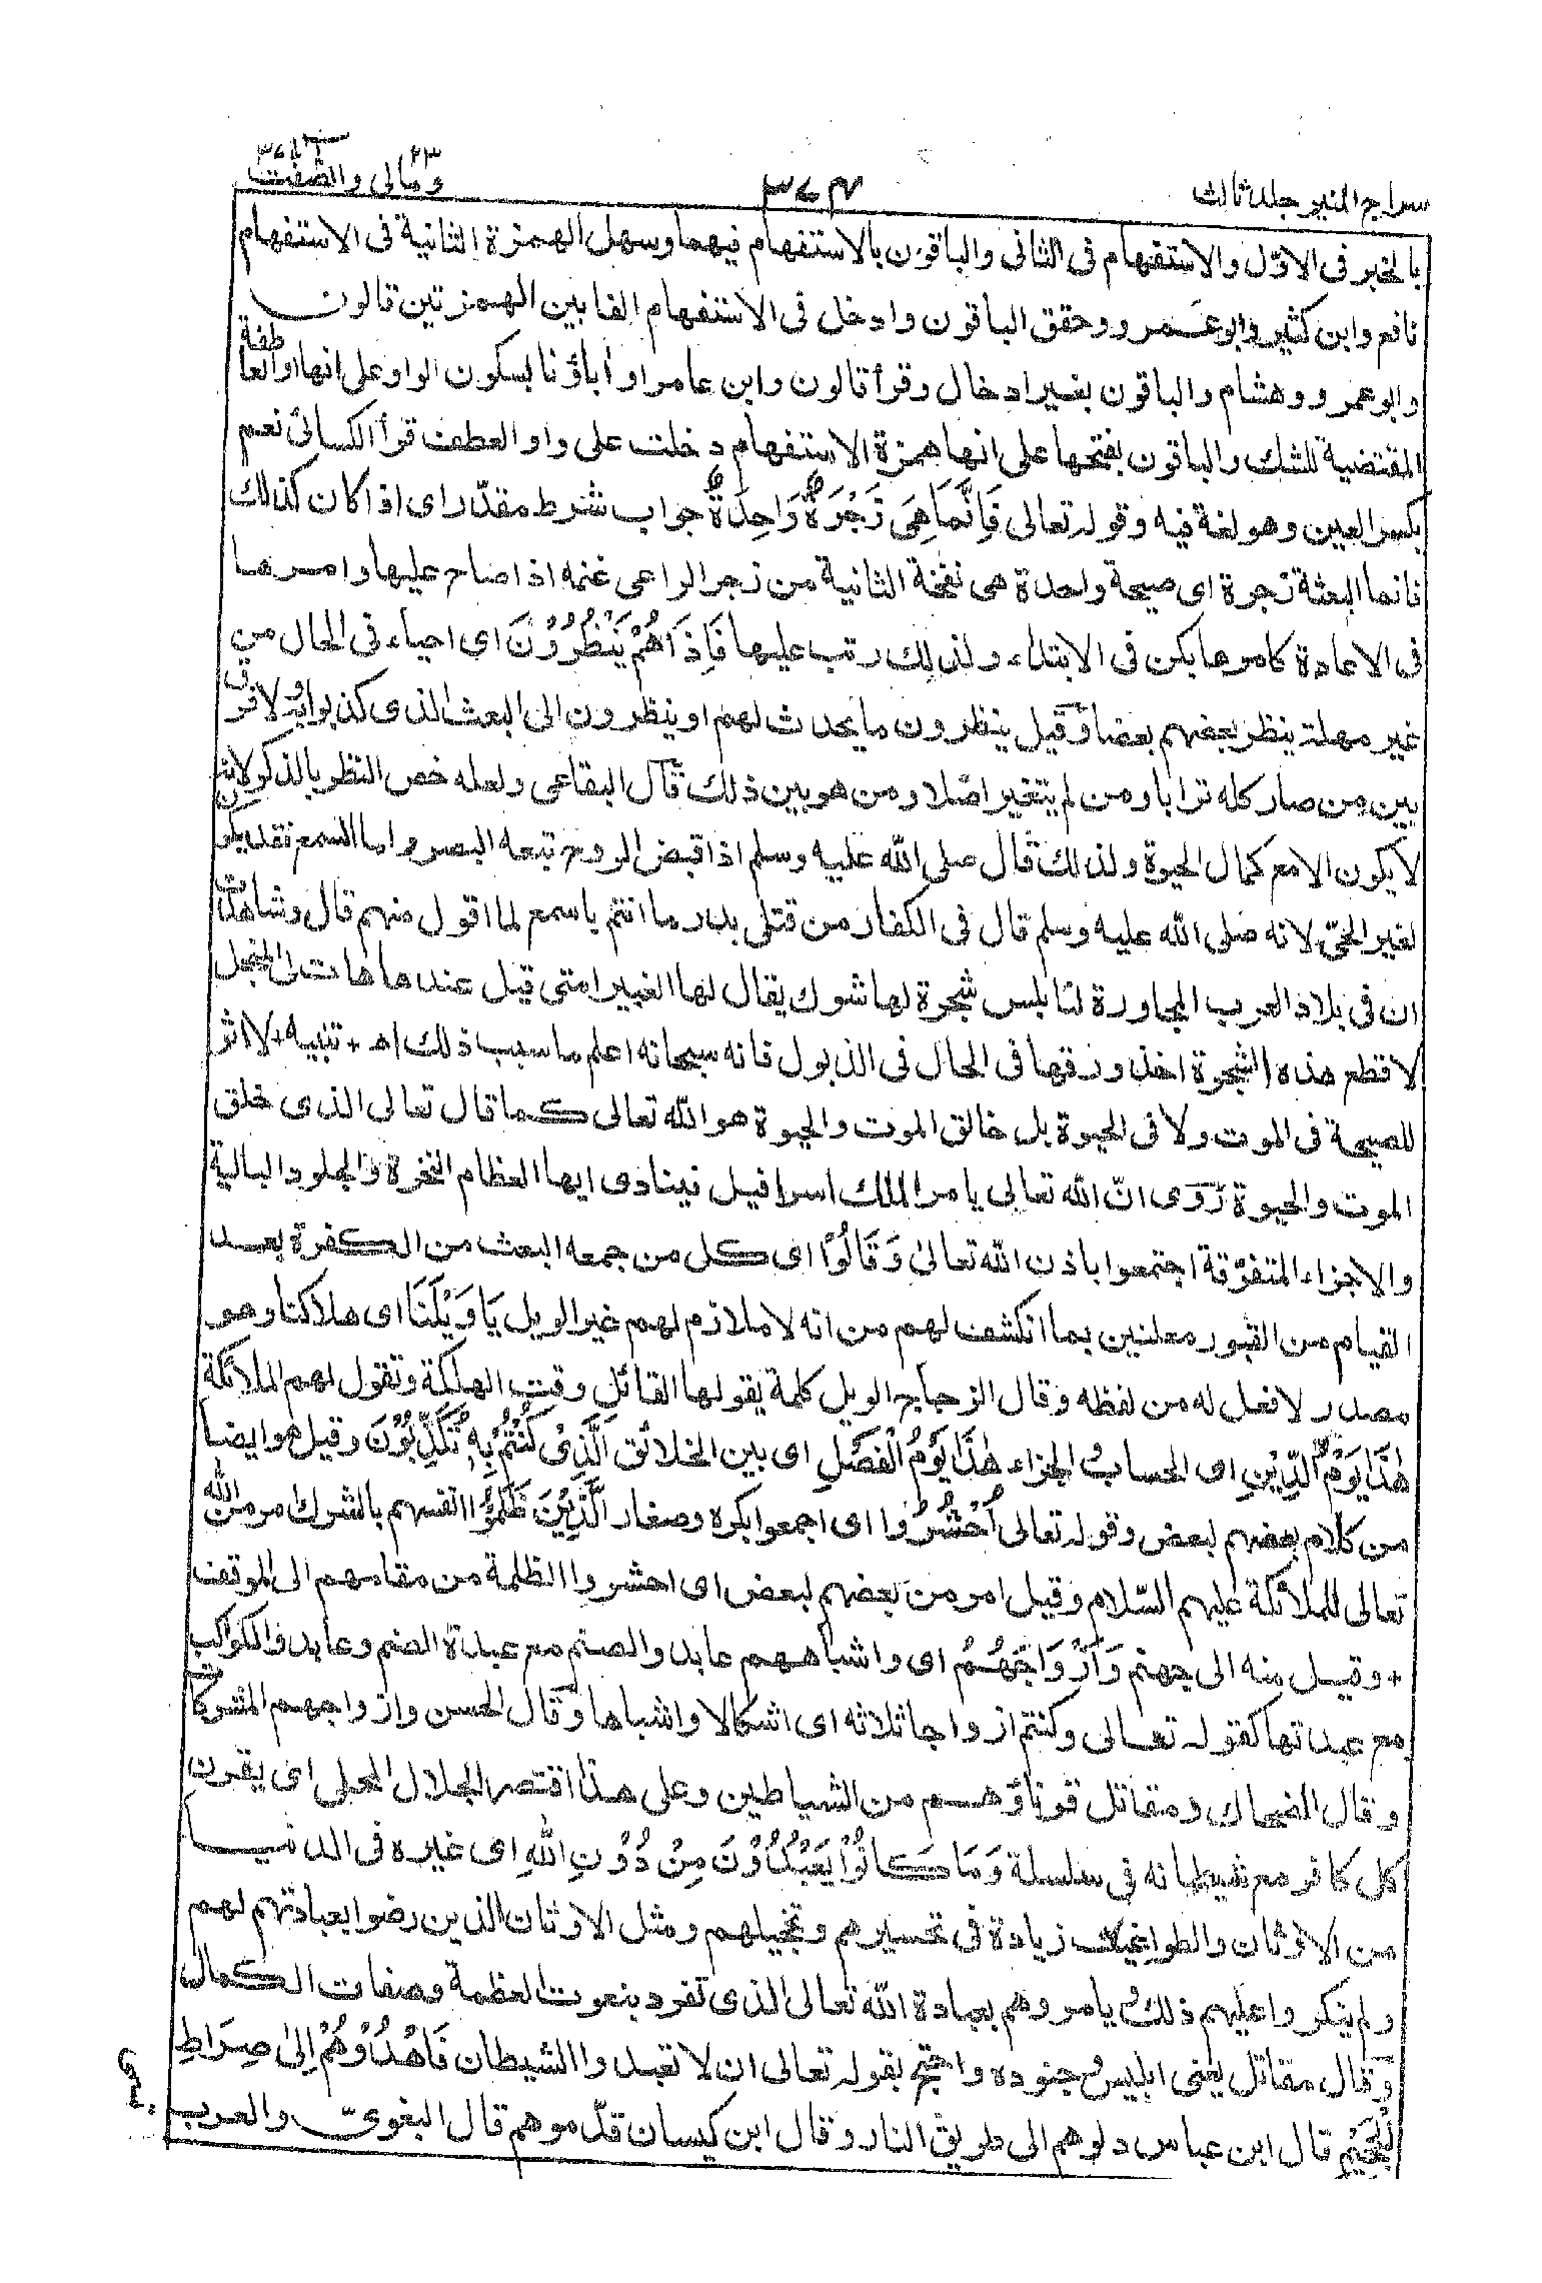 سراج المنير جلد ثالث
٣٧٤
٢٣ ومالى والصّفّت ٣٧
بالخبر فى الاوّل والاستفهام فى الثانى والباقون بالاستفهام فيهما وسهل الهمزة الثانية فى الاستفهام
نافع وابن كثير وابو عمرو وحقق الباقون وادخل فى الاستفهام الفا بين الهمزتين قالون
وابو عمرو وهشام والباقون بغير ادخال وقرأ قالون وابن عامر او أباؤنا بسكون الواو على انها او العاطفة
المقتضية للشك والباقون بفتحها على انها همزة الاستفهام دخلت على واو العطف قرأ الكسائى نعم
بكسر العين وهو لغة فيه وقوله تعالى فَاِنَّمَا هِىَ زَجْرَةٌ وَاحِدَةٌ جواب شرط مقدّر اى اذا كان كذلك
فانما البعثة زجرة اى صيحة واحدة هى نفخة الثانية من زجر الراعى غنمه اذا صاح عليها وامرها
فى الاعادة كامرها بكن فى الابتداء ولذلك رتب عليها فَاِذَا هُمْ يَنْظُرُوْنَ اى احياء فى الحال من
غير مهلة ينظر بعضهم بعضا وقيل ينظرون ما يحدث لهم او ينظرون الى البعث الذى كذبوا به ولا فرق
بين من صار كله ترابا ومن لم يتغير اصلا ومن هو بين ذلك قال البقاعى ولعله خص النظر بالذكر لانه
لا يكون الا مع كمال الحيوة ولذلك قال صلى الله عليه وسلم اذا قبض الروح تبعه البصر واما السمع فقد يكون
لغير الحىّ لانه صلى الله عليه وسلم قال فى الكفار من قتلى بدر ما انتم باسمع لما اقول منهم قال وشاهدت
ان فى بلاد العرب المجاورة لنابلس شجرة لها شوك يقال لها الغبيرا متى قيل عندها هات لى المنجل
لاقطع هذه الشجرة اخذ ورقها فى الحال فى الذبول فانه سبحانه اعلم ما سبب ذلك اه + تنبيه + لا اثر
للصيحة فى الموت ولا فى الحيوة بل خالق الموت والحيوة هو الله تعالى كما قال تعالى الذى خلق
الموت والحيوة رُوِى انّ الله تعالى يامر الملك اسرافيل فينادى ايها العظام النخرة والجلود البالية
والاجزاء المتفرّقة اجتمعوا باذن الله تعالىٰ وَقَالُوْا اى كل من جمعه البعث من الكفرة بعد
القيام من القبور معلنين بما انكشف لهم من انه لا ملازم لهم غير الويل يَا وَيْلَنَا اى هلاكنا وهو
مصدر لا فعل له من لفظه وقال الزجاج الويل كلمة يقولها القائل وقت الهلكة وتقول لهم الملائكة
هٰذَا يَوْمُ الدِّيْنِ اى الحساب والجزاء هٰذَا يَوْمُ الْفَصْلِ اى بين الخلائق الَّذِىْ كُنْتُمْ بِهٖ تُكَذِّبُوْنَ وقيل هو ايضا
من كلام بعضهم لبعض وقوله تعالى اُحْشُرُوا اى اجمعوا بكره وصغار الَّذِيْنَ ظَلَمُوْا انفسهم بالشرك امر من الله
تعالى للملائكة عليهم السّلام وقيل امر من بعضهم لبعض اى احشروا الظلمة من مقامهم الى الموقف
+ وقيل منه الى جهنم وَاَزْوَاجَهُمْ اى واشباههم عابدوا الصنم مع عبدة الصنم وعابدوا الكواكب
مع عبدتها كقوله تعالى وكنتم ازواجا ثلاثه اى اشكالا واشباها وقال الحسن وازواجهم المشركات
وقال الضحاك ومقاتل قرناؤهم من الشياطين وعلى هذا اقتصر الجلال المحلى اى يقرن
كل كافر مع شيطانه فى سلسلة وَمَا كَانُوْا يَعْبُدُوْنَ مِنْ دُوْنِ اللهِ اى غيره فى الدنيا
من الاوثان والطواغيت زيادة فى تحسيرهم وتخجيلهم ومثل الاوثان الذين رضوا بعبادتهم لهم
ولم ينكروا عليهم ذلك ويامروهم بعبادة الله تعالى الذى تفرد بنعوت العظمة وصفات الكمال
وقال مقاتل يعنى ابليس وجنوده واحتج بقوله تعالى ان لا تعبدوا الشيطان فَاهْدُوْهُمْ اِلىٰ صِرَاطِ
الْجَحِيْمِ قال ابن عباس دلوهم الى طريق النار وقال ابن كيسان قدّموهم قال البغوىّ والعرب